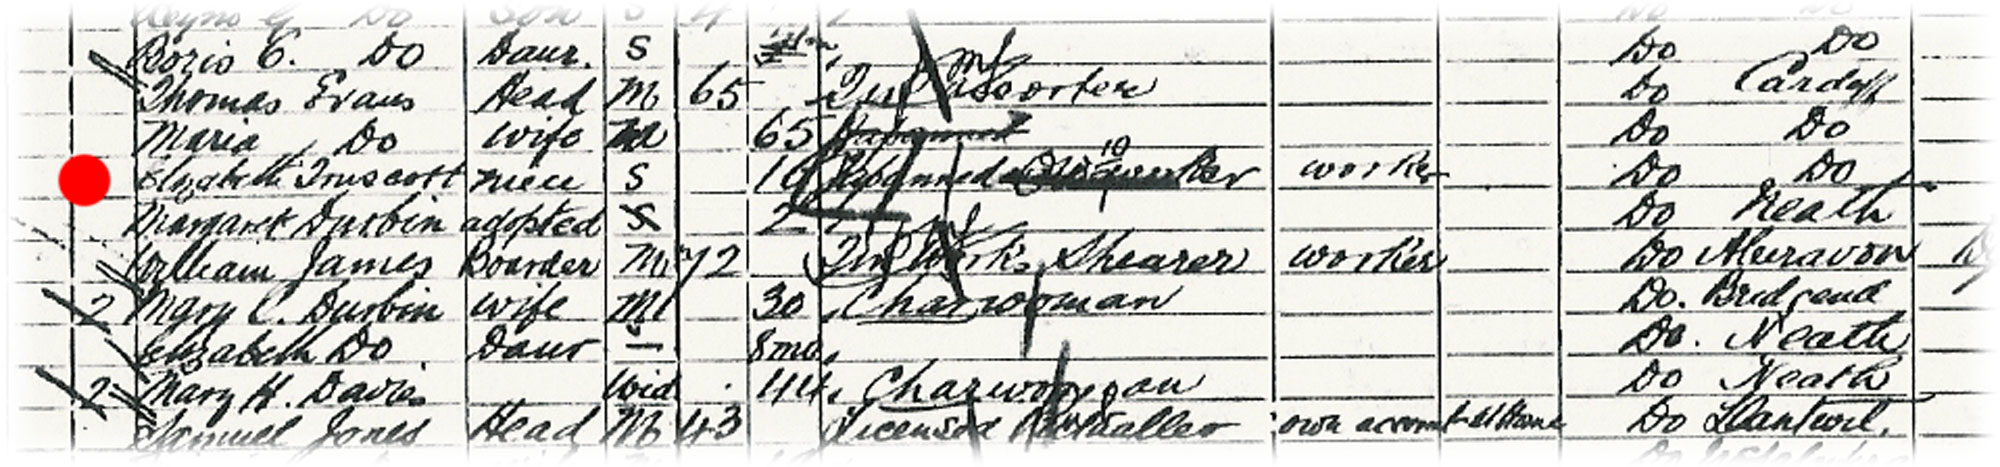 Do Son S 4 Do Do
Doris C. Do Daur. S Do Do
Thomas Evans Head M 65 Tin Assorter Do Cardiff
Maria Do Wife M 65 Do Do
Elizabeth Truscott niece S 16 worker Do Do
Margaret Durbin adopted S 2 Do Neath
William James Boarder M 72 Tin Works Shearer worker Do Aberavon
2 Mary C. Durbin wife M 30 Charwoman Do. Bridgend
Elizabeth Do Daur — 8mo. Do. Neath
2 Mary H. Davies Wid 44 Charwoman Do Neath
Samuel Jones Head M 43 Licensed Victualler own account At Home Do